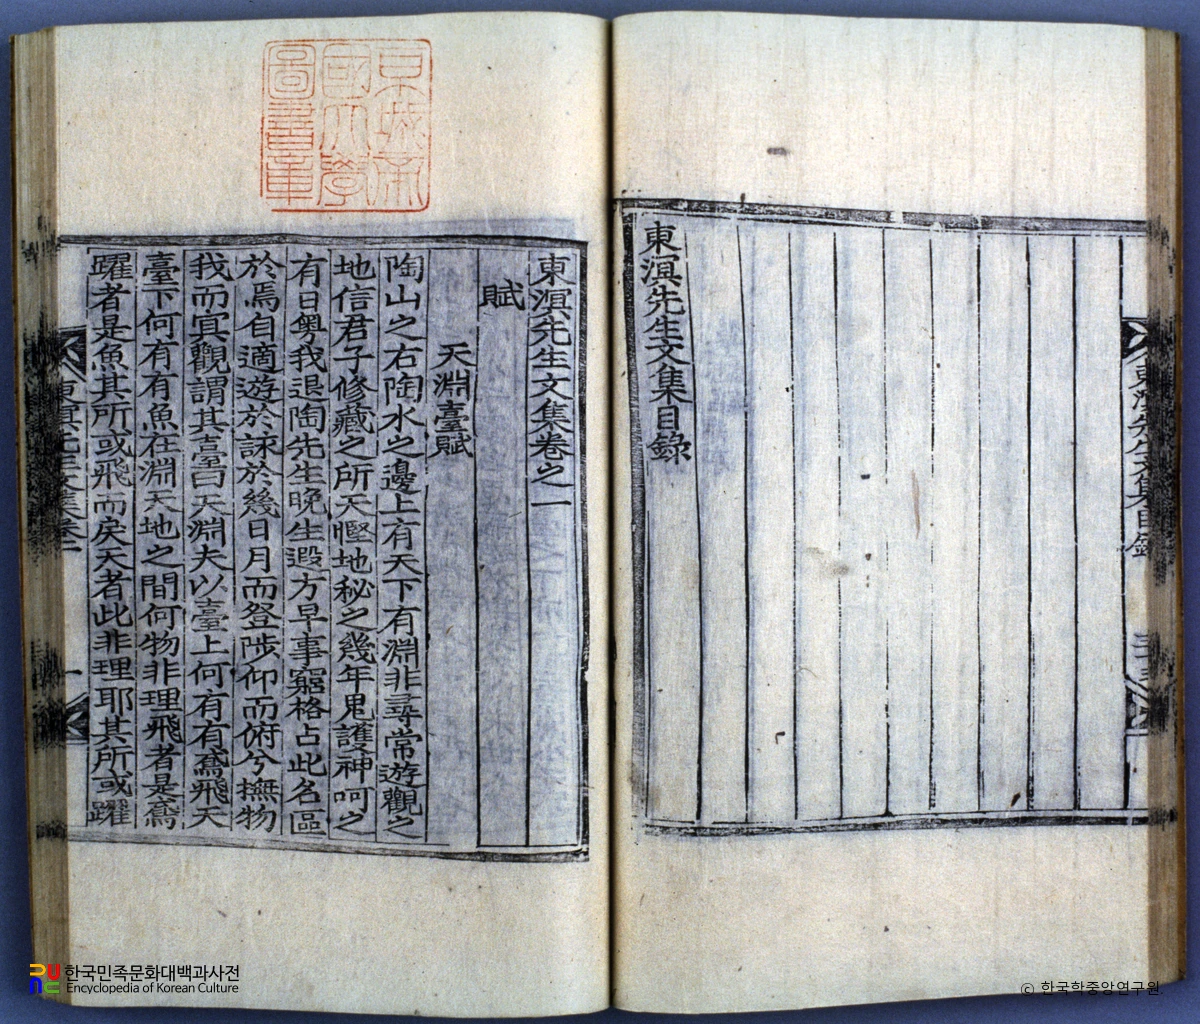 東溟先生文集目錄
東溟先生文集目錄
京城帝
國大學
圖書章
東溟先生文集卷之一
賦
天淵臺賦
陶山之右陶水之邊上有天下有淵非尋常遊觀之
地信君子修藏之所天慳地秘之幾年鬼護神呵之
有日粤我退陶先生晚生遐方早事窮格占此名區
於焉自適遊於詠於幾日月而登陟仰而俯兮撫物
我而冥觀謂其臺曰天淵夫以臺上何有有鳶飛天
臺下何有有魚在淵天地之間何物非理飛者是鳶
躍者是魚其所或飛而戾天者此非理耶其所或躍
東溟先生文集卷一
一
한국민족문화대백과사전
Encyclopedia of Korean Culture
© 한국학중앙연구원